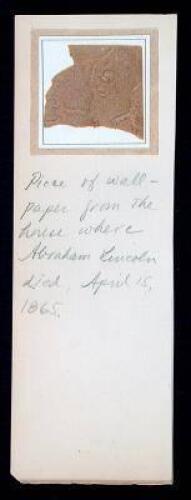 Piece of wall-
paper from the
house where
Abraham Lincoln
died, April 15,
1865.